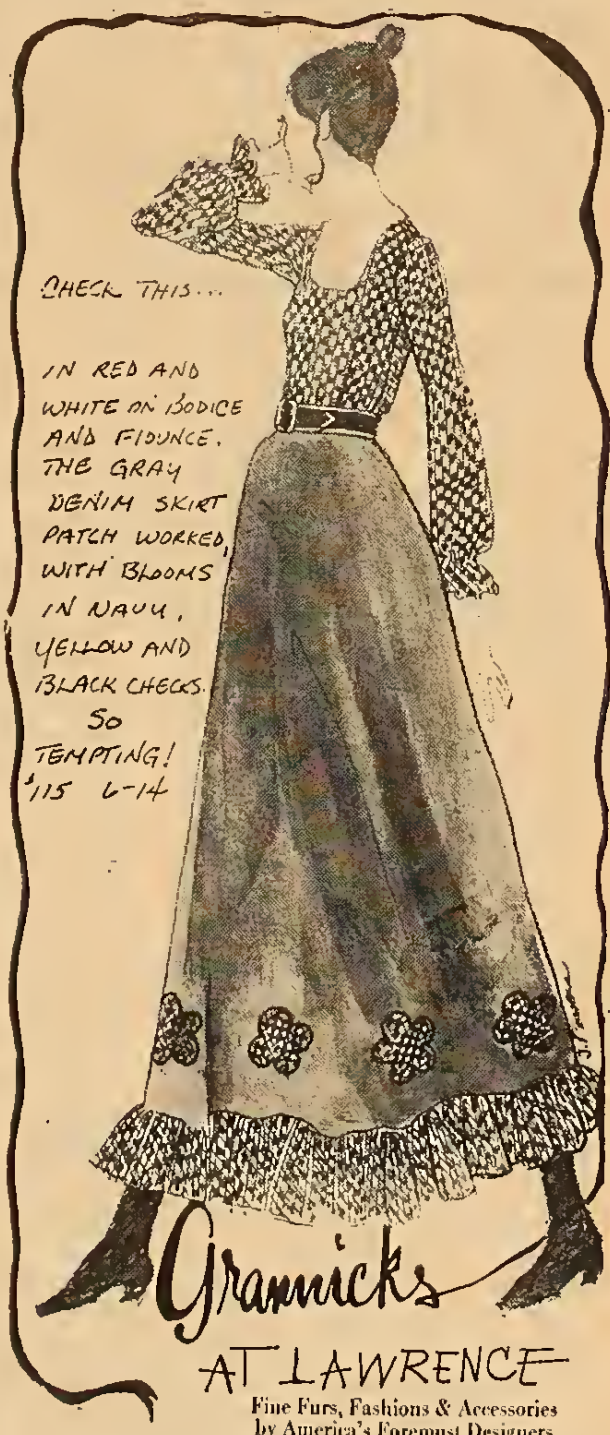 CHECK THIS...
IN RED AND
WHITE ON BODICE
AND FLOUNCE.
THE GRAY
DENIM SKIRT
PATCH WORKED,
WITH BLOOMS
IN NAVY,
YELLOW AND
BLACK CHECKS.
SO
TEMPTING!
$115 6-14
Grannicks
AT LAWRENCE
Fine Furs, Fashions & Accessories
by America's Foremost Designers